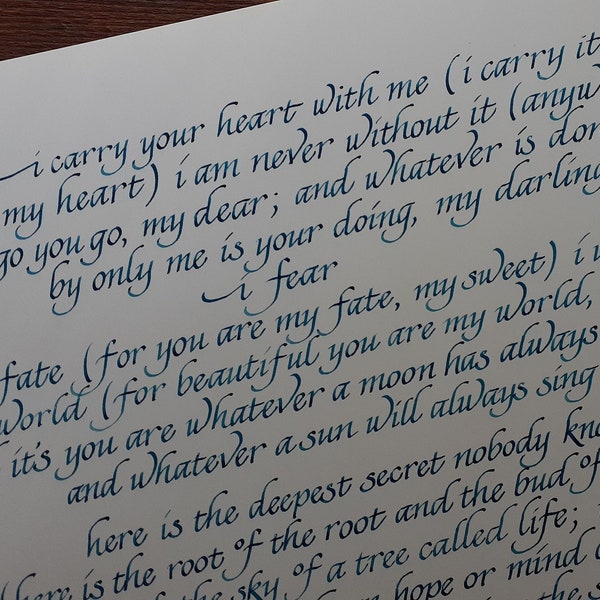 i carry your heart with me (i carry it
my heart) i am never without it (anyw
go you go, my dear; and whatever is don
by only me is your doing, my darling
i fear
fate (for you are my fate, my sweet) i w
world (for beautiful you are my world,
it's you are whatever a moon has always
and whatever a sun will always sing
here is the deepest secret nobody kno
here is the root of the root and the bud of
the sky of a tree called life;
hope or mind c
the s